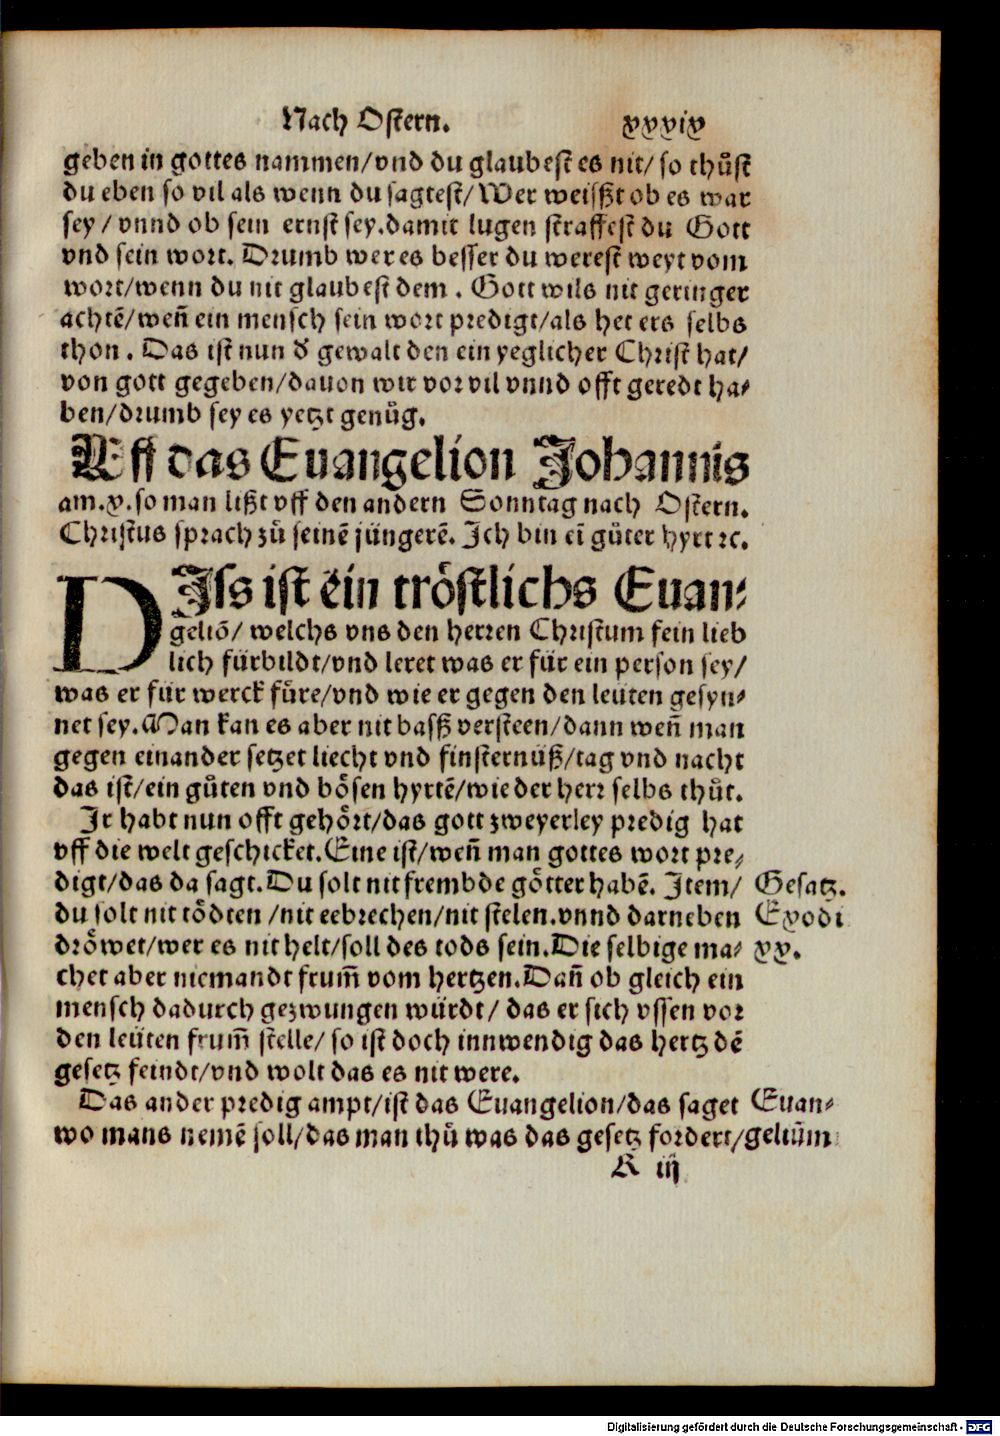 Nach Ostern. xxxix
geben in gottes nammen/vnd du glaubest es nit/ so thůst
du eben so vil als wenn du sagtest/ Wer weißt ob es war
sey / vnnd ob sein ernst sey. damit lugen straffest du Gott
vnd sein wort. Drumb wer es besser du werest weyt vom
wort/wenn du nit glaubest dem . Gott wils nit geringer
achtē/weñ ein mensch sein wort predigt/als het ers selbs
thon . Das ist nun d̕ gewalt den ein yeglicher Christ hat/
von gott gegeben/dauon wir vor vil vnnd offt geredt ha⸗
ben/drumb sey es yetzt genůg.
Uff das Euangelion Johannis
am.x.so man lißt vff den andern Sonntag nach Ostern.
Christus sprach zů seinē jüngerē. Ich bin eī gůter hyrt ꝛc.
DIss ist ein tröstlichs Euan⸗
geliō/ welchs vns den herren Christum fein lieb
lich fürbildt/vnd leret was er für ein person sey/
was er für werck fůre/vnd wie er gegen den leüten gesyn⸗
net sey. Man kan es aber nit baß versteen/dann weñ man
gegen einander setzet liecht vnd finsternüß/tag vnd nacht
das ist/ein gůten vnd bösen hyrtē/wie der herr selbs thůt.
Ir habt nun offt gehört/das gott zweyerley predig hat
vff die welt geschicket. Eine ist/weñ man gottes wort pre⸗
digt/das da sagt. Du solt nit frembde götter habē. Item/ Gesatz.
du solt nit tödten /nit eebrechen/nit stelen.vnnd darneben Exodi
dröwet/wer es nit helt/soll des tods sein. Die selbige ma⸗ xx.
chet aber niemandt frum̃ vom hertzen. Dañ ob gleich ein
mensch dadurch gezwungen würdt/ das er sich vssen vor
den leüten frum̃ stelle/ so ist doch innwendig das hertz dē
gesetz feindt/vnd wolt das es nit were.
Das ander predig ampt/ist das Euangelion/das saget Euan⸗
wo mans nemē soll/das man thů was das gesetz fordert/ geliũm
K iij
Digitalisierung gefördert durch die Deutsche Forschungsgemeinschaft - DFG